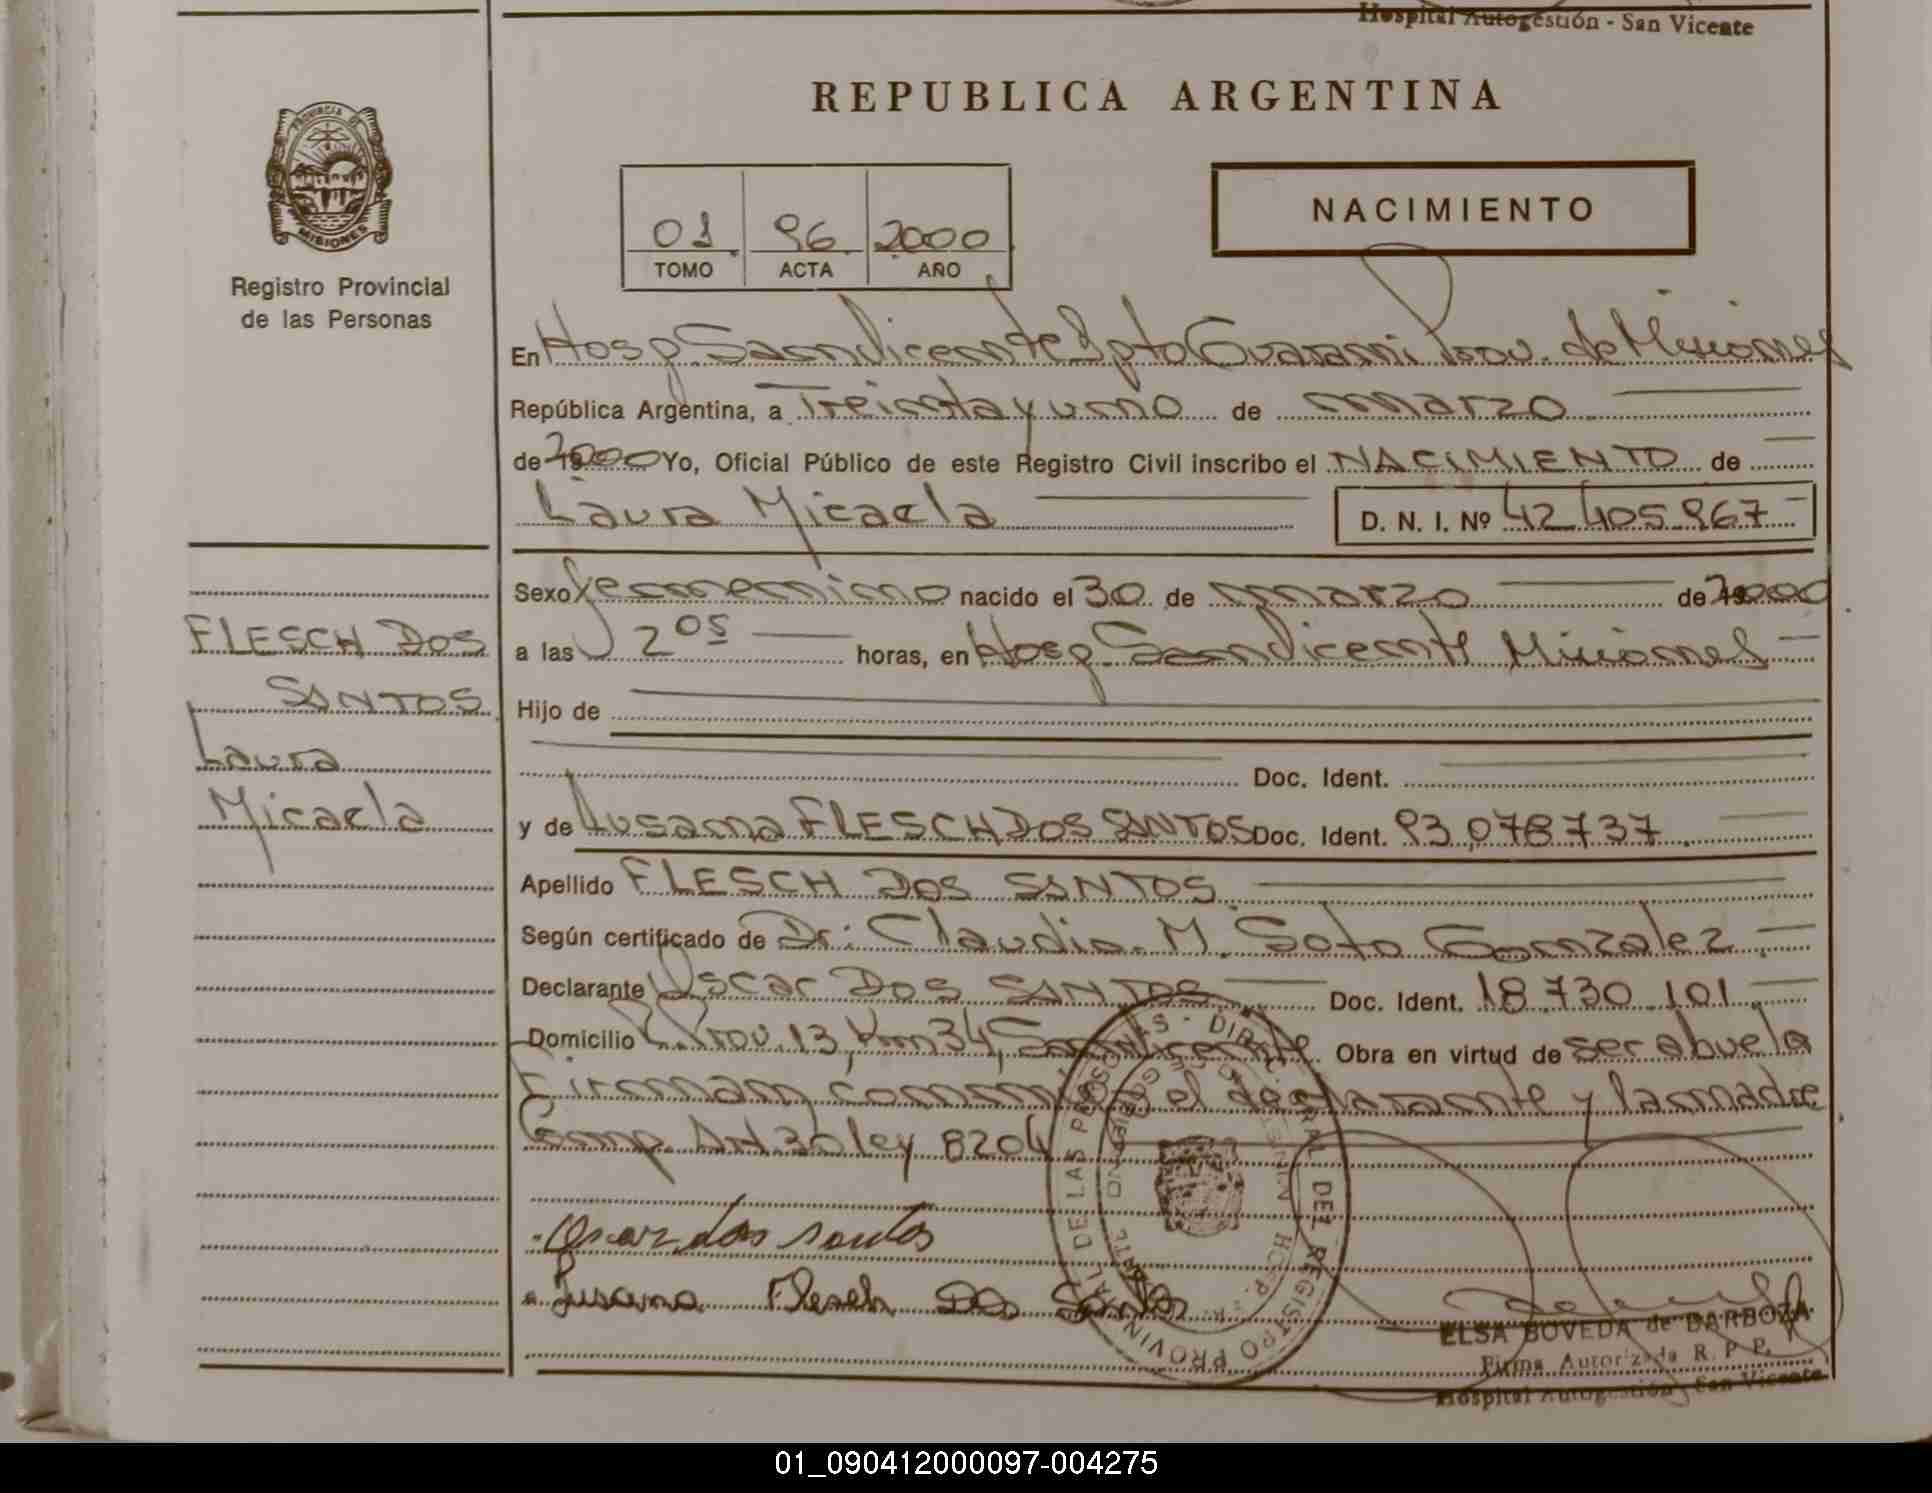 Hospital Autogestión - San Vicente
REPUBLICA ARGENTINA
PROVINCIA DE
MISIONES
Registro Provincial
de las Personas
01 96 2000
TOMO ACTA AÑO
NACIMIENTO
En Hosp San Vicente Dpto Guarani Prov. de Misiones
República Argentina, a Treinta y uno de marzo
de 2000 Yo, Oficial Público de este Registro Civil inscribo el NACIMIENTO de
Laura Micaela D. N. I. Nº 42.405.967
Sexo femenino nacido el 30 de marzo de 2000
a las 2 05 horas, en Hosp San Vicente Misiones
Hijo de
Doc. Ident.
y de Susana FLESCH DOS SANTOS Doc. Ident. 93.078.737
Apellido FLESCH DOS SANTOS
Según certificado de Dr: Claudia M. Soto Gonzalez
Declarante Oscar DOS SANTOS Doc. Ident. 18.730.101
Domicilio R. Prov. 13, Km 34, San Vicente Obra en virtud de ser abuela
Firman conmigo el declarante y la madre
Comp. Art 30 ley 8204
FLESCH DOS
SANTOS
Laura
Micaela
Oscar dos santos
Susana Flesch Dos Santos
DEL REGISTRO PROVINCIAL DE LAS PERSONAS
ELSA BOVEDA de BARBOZA
Firma Autorizada R. P. P.
Hospital Autogestión - San Vicente
01_090412000097-004275